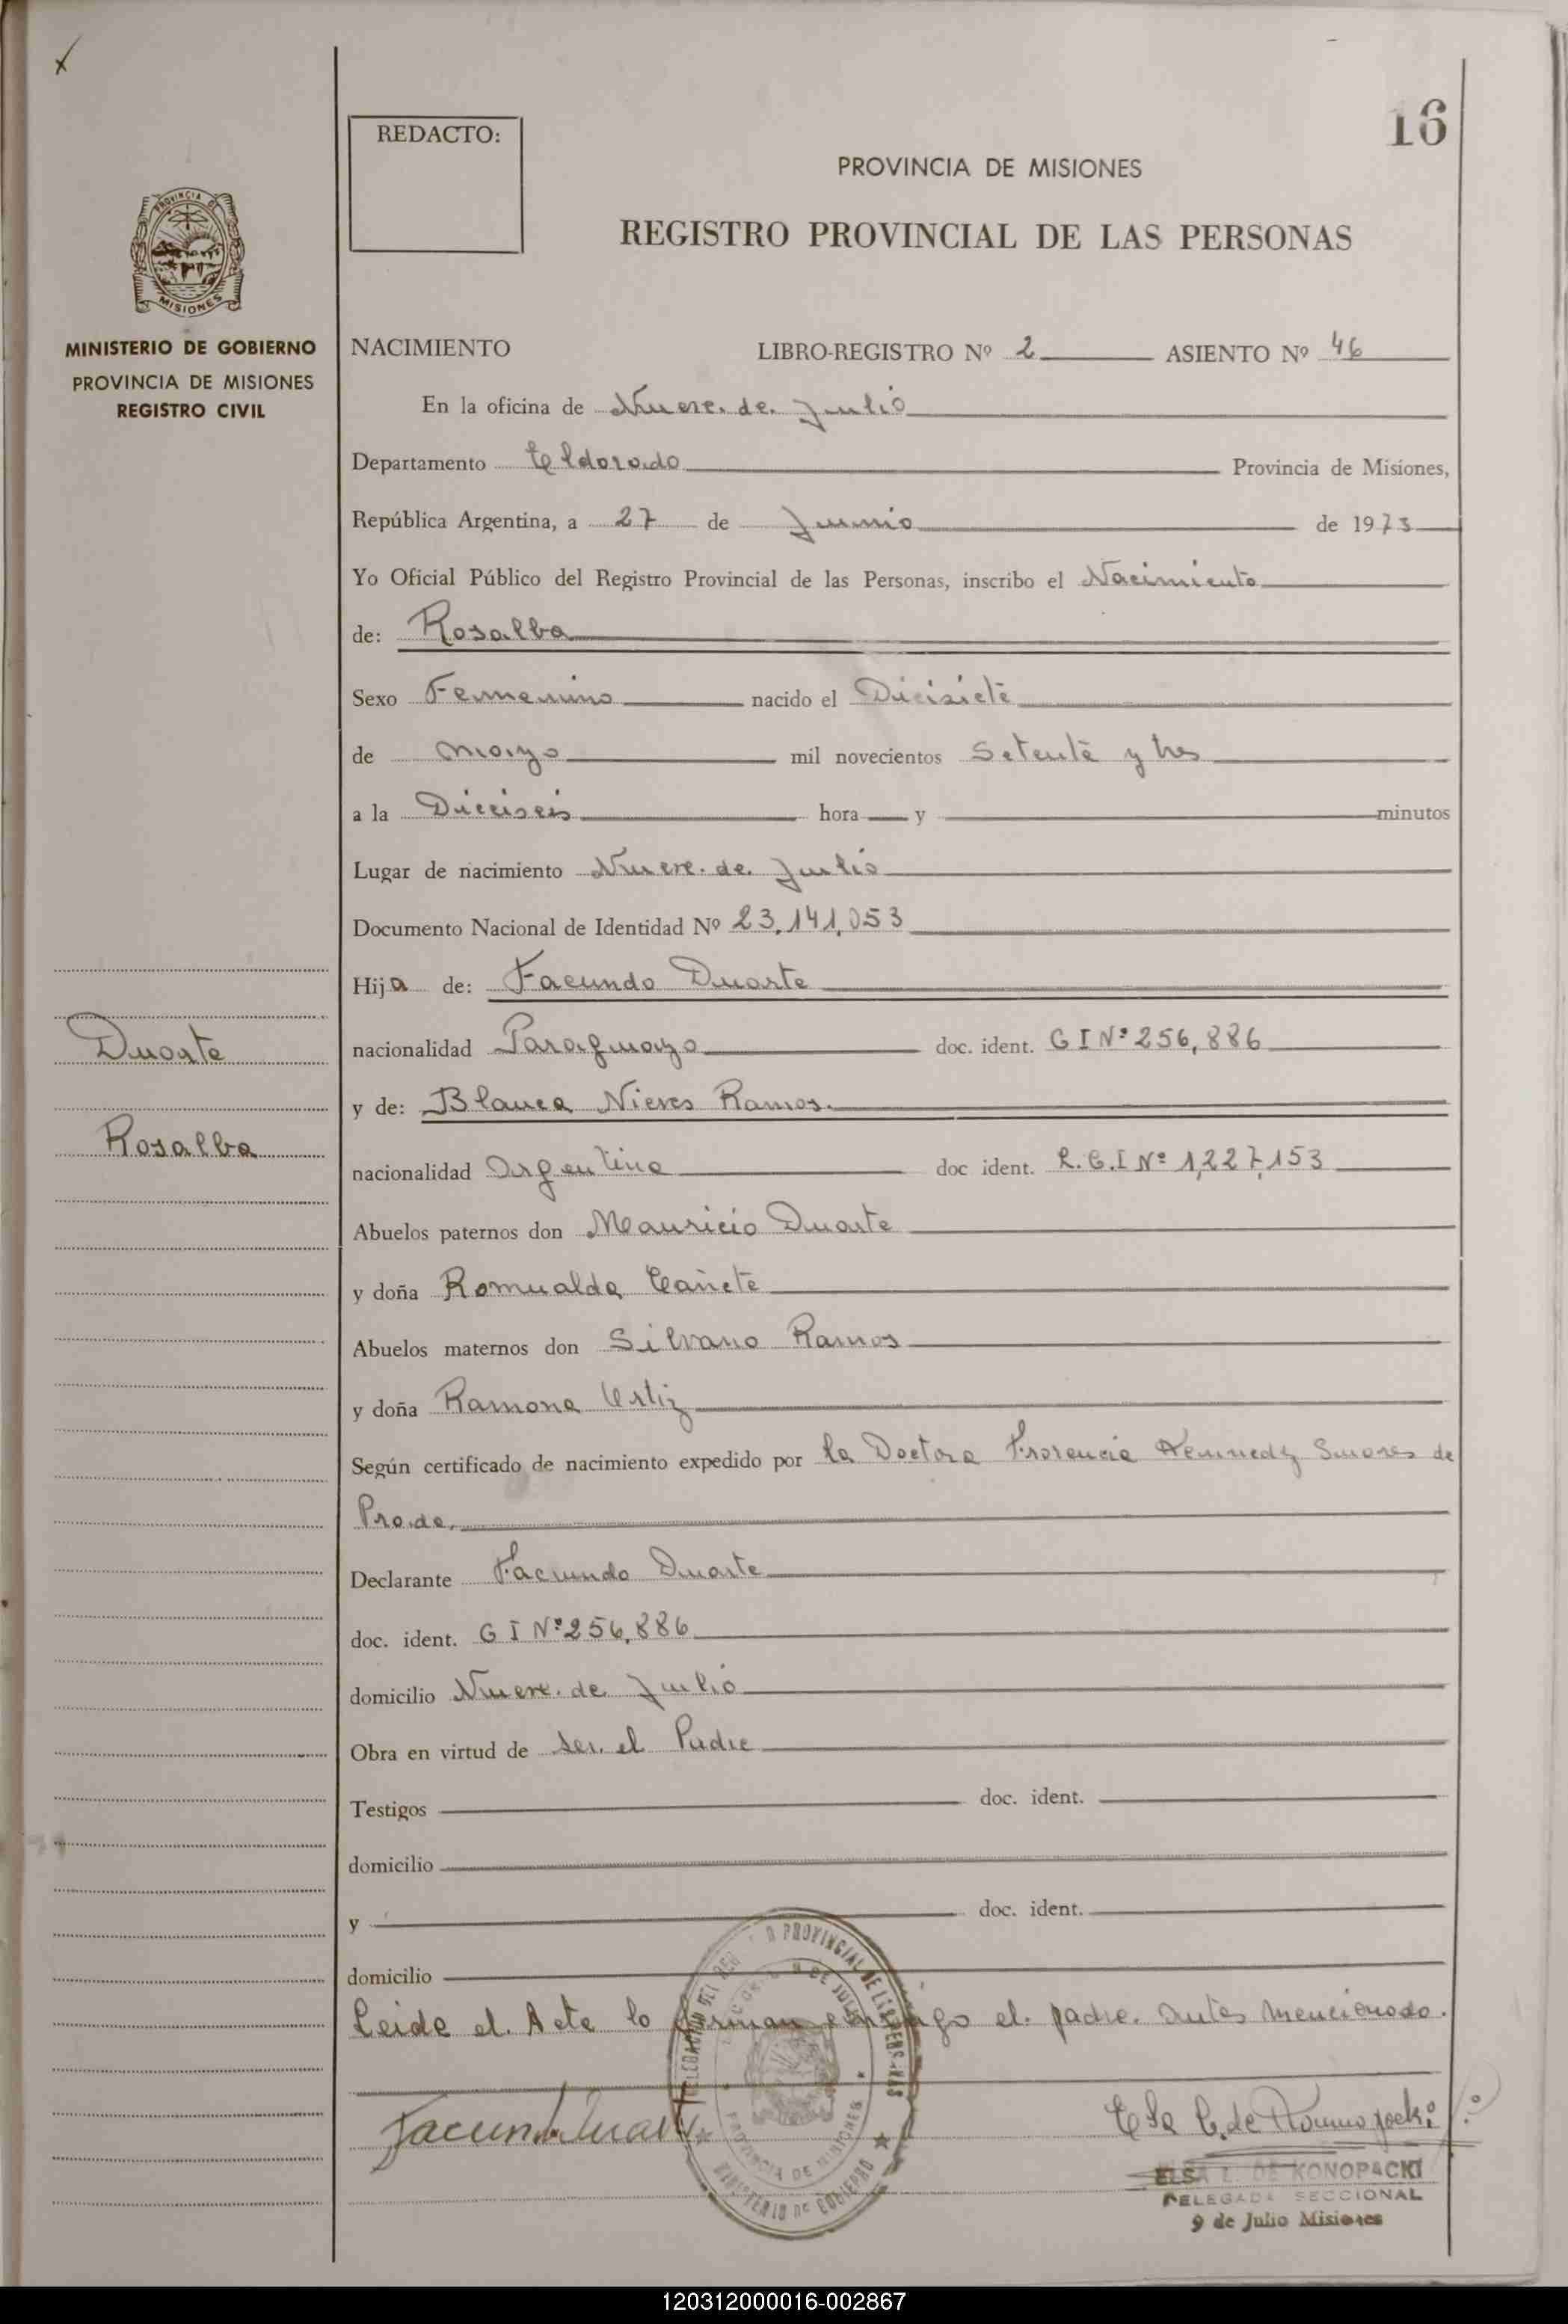 16
REDACTO:
PROVINCIA DE MISIONES
REGISTRO PROVINCIAL DE LAS PERSONAS
PROVINCIA DE
MISIONES
MINISTERIO DE GOBIERNO
PROVINCIA DE MISIONES
REGISTRO CIVIL
NACIMIENTO LIBRO-REGISTRO Nº 2 ASIENTO Nº 46
En la oficina de Nueve de Julio
Departamento Eldorado Provincia de Misiones,
República Argentina, a 27 de Junio de 1973
Yo Oficial Público del Registro Provincial de las Personas, inscribo el Nacimiento
de: Rosalba
Sexo Femenino nacido el Dicisiete
de mayo mil novecientos Setenta y tres
a la Dieciseis hora y minutos
Lugar de nacimiento Nueve de Julio
Documento Nacional de Identidad Nº 23,141,053
Hija de: Facundo Duarte
Duarte
nacionalidad Paraguayo doc. ident. C I Nº 256,886
y de: Blanca Nieves Ramos.
Rosalba
nacionalidad Argentina doc ident. R.C.I Nº 1,227,153
Abuelos paternos don Mauricio Duarte
y doña Romualda Cañete
Abuelos maternos don Silvano Ramos
y doña Ramona Ortiz
Según certificado de nacimiento expedido por la Doctora Kennedy de
Prada.
Declarante Facundo Duarte
doc. ident. C I Nº 256,886
domicilio Nueve de Julio
Obra en virtud de ser el Padre
Testigos doc. ident.
domicilio
y doc. ident.
domicilio
Leida el Acta lo firman conmigo el padre antes mencionado.
PROVINCIA DE MISIONES
MINISTERIO DE GOBIERNO
ELSA L. DE KONOPACKI
DELEGADA SECCIONAL
9 de Julio Misiones
120312000016-002867